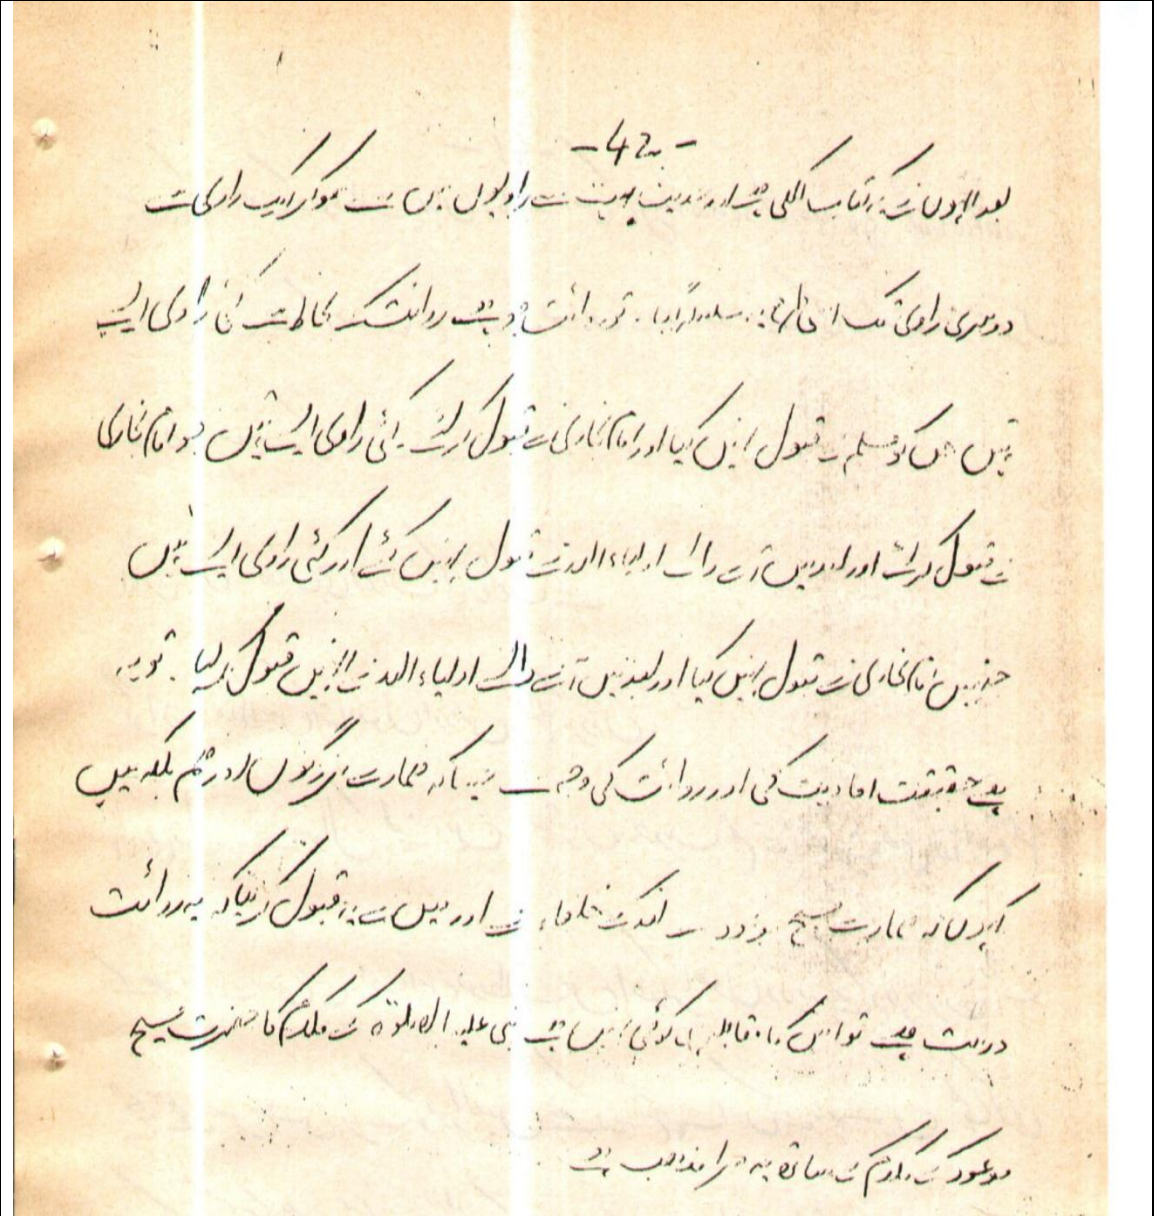 -42-
بعد انہوں نے یہ کتاب لکھی ہے اور حدیث بہت سے راویوں میں سے ہو کر ایک راوی سے
دوسری راوی تک اسی طرح یہ سلسلہ گیا۔ تو یہ رائت جو ہے روائت کے لحاظ سے کئی راوی ایسے
ہیں جن کو مسلم نے قبول نہیں کیا اور امام بخاری نے قبول کر لئے۔ کئی راوی ایسے ہیں جو امام بخاری
نے قبول کر لئے اور بعد میں آنے والے اولیاء اللہ نے قبول نہیں کئے اور کئی راوی ایسے ہیں
جنہیں امام بخاری نے قبول نہیں کیا اور بعد میں آنے والے اولیاء اللہ نے انہیں قبول کر لیا۔ تو یہ
ہے حقیقت احادیث کی اور روائت کی وجہ سے نیز یہ کہ ہمارے بزرگوں اور ہم بلکہ میں
کہوں گا کہ ہمارے مسیح موعود نے انکے خلفاء نے اور میں نے یہ قبول کر لیا کہ یہ روائت
درست ہے تو اس کا مقابلہ کوئی نہیں ہے نبی علیہ الصلوۃ کے کلام کا حضرت مسیح
موعود کے کلام کے ساتھ یہ میرا مذہب ہے